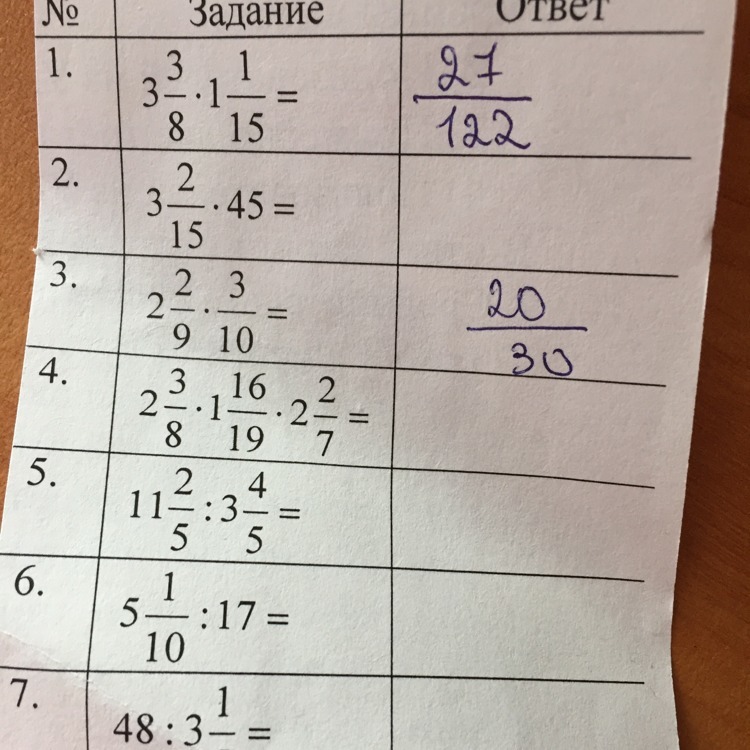 № Задание Ответ
1. 3 3/8 · 1 1/15 = 27/122
2. 3 2/15 · 45 =
3. 2 2/9 · 3/10 = 20/30
4. 2 3/8 · 1 16/19 · 2 2/7 =
5. 11 2/5 : 3 4/5 =
6. 5 1/10 : 17 =
7. 48 : 3 1/ =